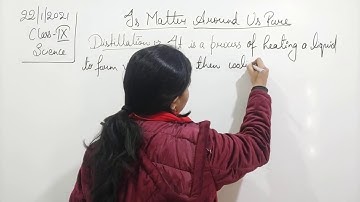 22/1/2021
Class-IX
Science
Is Matter Around Us Pure
Distillation :- It is a process of heating a liquid
to form then cooli